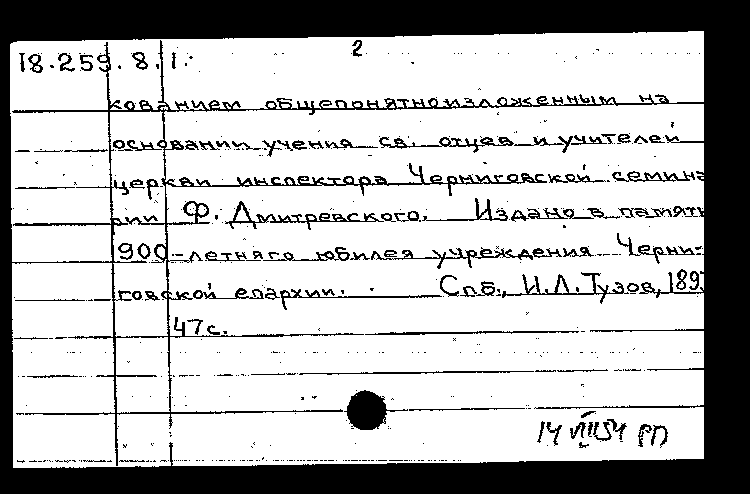 2
18.259.8.1.
кованием общепонятноизложенным на
основании учения св. отцев и учителей
церкви инспектора Черниговской семина
рии Ф. Дмитревского. Издано в память
900-летняго юбилея учреждения Черни-
говской епархии. Спб., И.Л.Тузов,
47с.
14 VIII 54